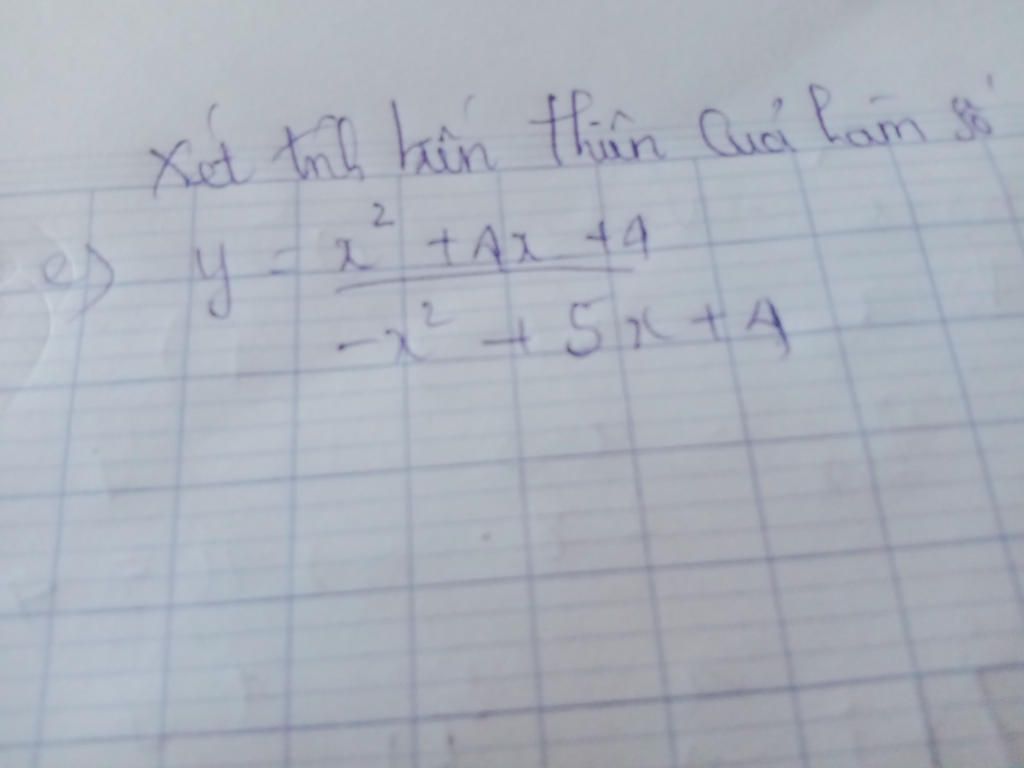 Xét tính biến thiên của hàm số
e) y = x² + 4x + 4
-x² + 5x + 4